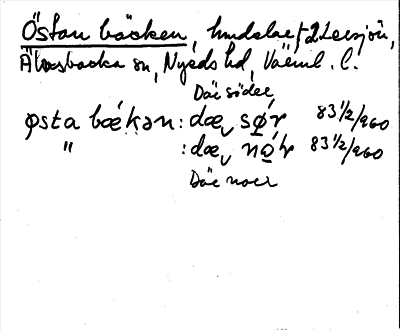 Östan bäcken, hmdelar, 2 Lersjön,
Älvsbacka sn, Nyeds hd, Värml. l.
Där söder
østa bǽkən: dæ sø̣r 83 1/2/960
" : dæ nọ́r 83 1/2/960
Där norr